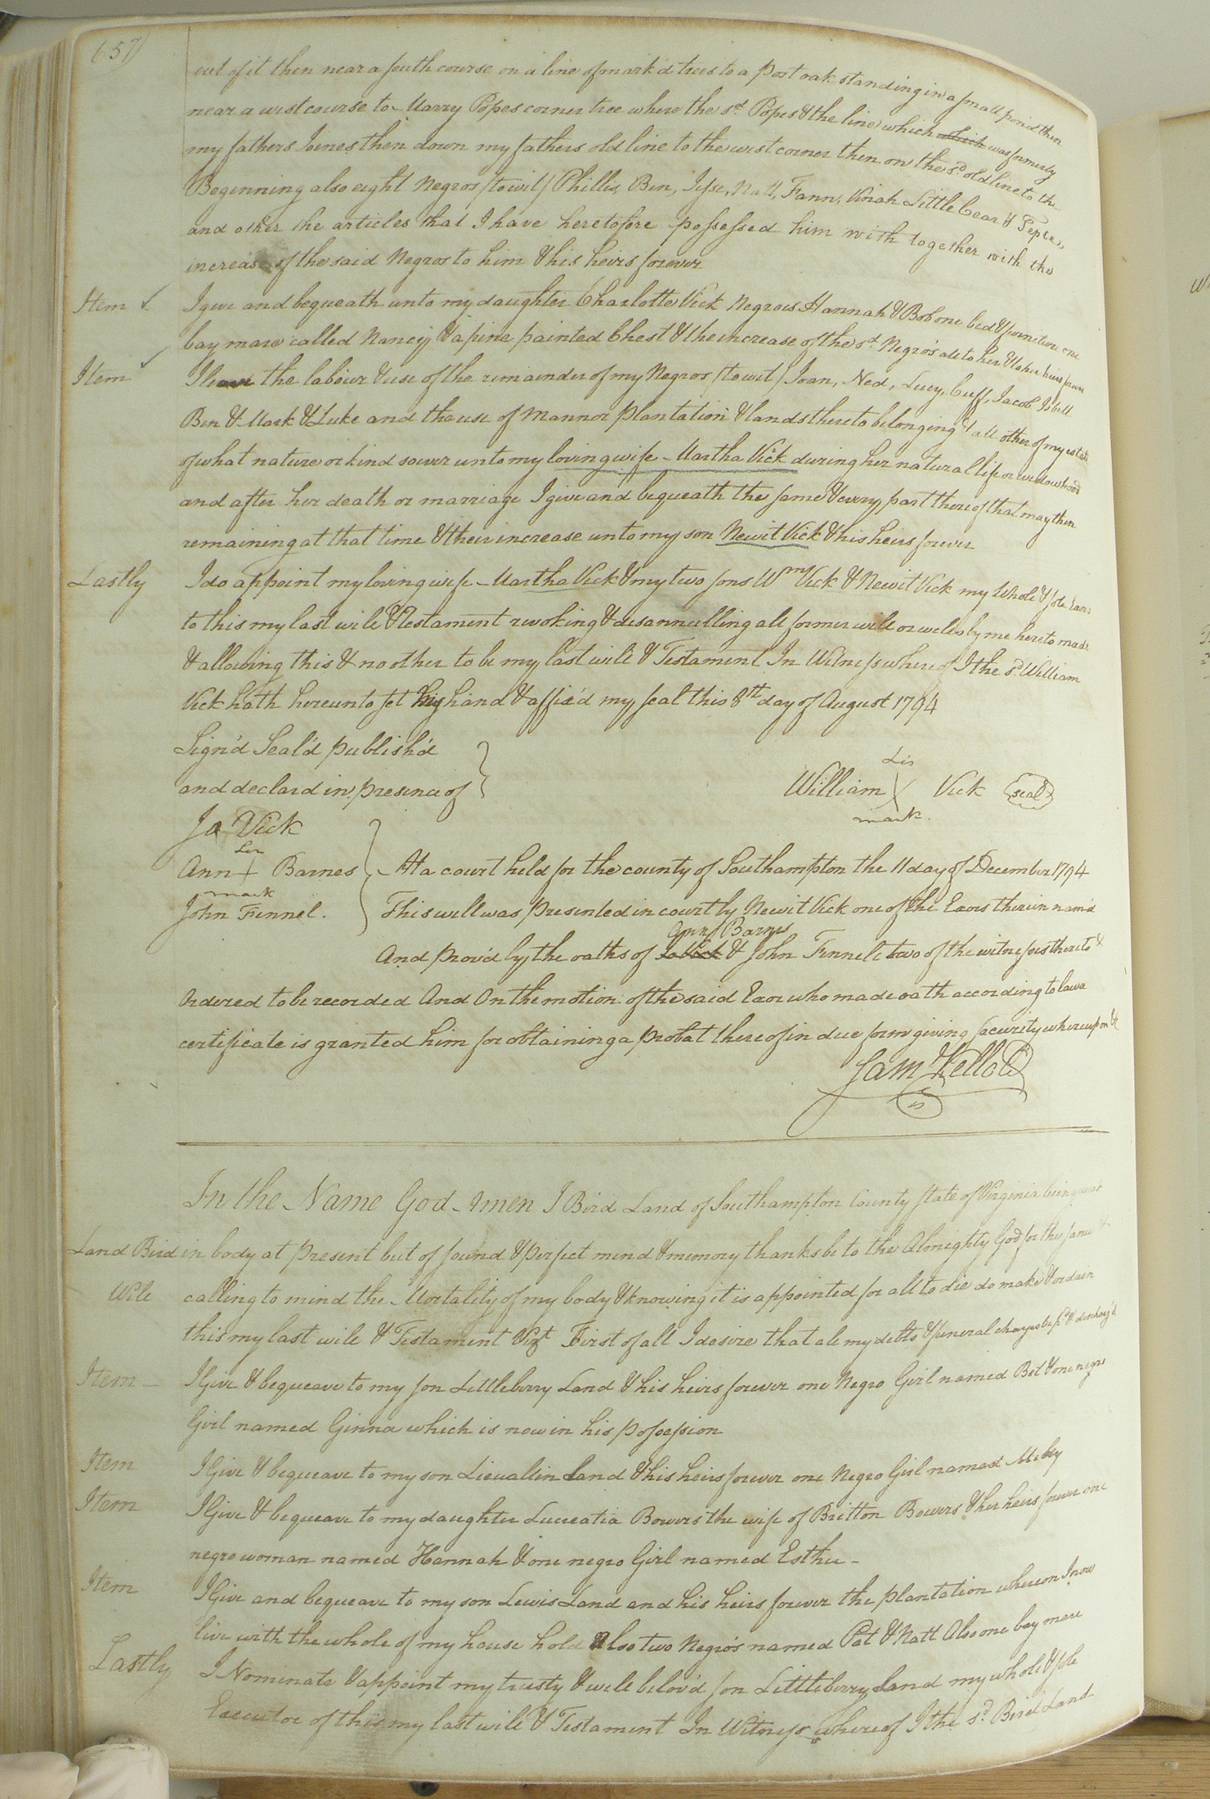 (657)
out of it then near a south course on a line of mark'd trees to a Post oak standing in a small pond then
near a west course to Harry Popes corner tree where the sd. Popes & the line which which was formerly
my fathers Joines then down my fathers old line to the west corner then on the sd old line to the
Beginning also eight Negros (towit) Phillis, Ben, Jesse, Natt, Fann, Vinah Little Cear & Peple,
and other the articles that I have heretofore possessed him with together with the
increase of the said Negros to him & his heirs forever
Item I give and bequeath unto my daughter Charlotte Vick Negroes Hannah & Bob one bed & furniture one
bay mare called Nancy & a pine painted Chest & the increase of the sd. Negro's all to her & her heirs forever
Item I leave the labour & use of the remainder of my Negros (towit) Joan, Ned, Lucy, Cuff, Jacob Isbell
Ben & Mark & Luke and the use of Mannor plantation & lands thereto belonging & all other of my estate
of what nature or kind soever unto my loving wife Martha Vick during her natural life or widowhood
and after her death or marriage I give and bequeath the same & every part thereof that may then
remaining at that time & their increase unto my son Newit Vick & his heirs forever
Lastly I do appoint my loving wife Martha Vick & my two sons Wm Vick & Newit Vick my Whole & sole Exors
to this my last will & Testament revoking & disannulling all former will or wills by me hereto made
& allowing this & no other to be my last will & Testament In Witness whereof I the sd. William
Vick hath hereunto set my hand & affix'd my seal this 8th day of August 1794
Sign'd Seal'd publish'd
and declard in presence of
his
William X Vick seal
mark.
Ja Vick
her
Ann + Barnes
mark
John Finnel.
At a court held for the county of Southampton the 11 day of December 1794
This will was presented in court by Newit Vick one of the Exors therein nam'd
Ann Barnes
And prov'd by the oaths of Ja Vick & John Finnell two of the witnesses thereto &
Ordered to be recorded And On the motion of the said Exor who made oath according to law
certificate is granted him for obtaining a probat thereof in due form giving security whereupon &c
Saml Kello CC
In the Name God Amen I Bird Land of Southampton County State of Virginia being weak
Land Bird in body at present but of sound & perfect mind & memory thanks be to the Almighty God for the same &
Will calling to mind the Mortality of my body & knowing it is appointed for all to die do make & ordain
this my last will & Testament Vizt First of all I desire that all my debts & funeral charges be pd & discharg'd
Item I Give & bequeave to my son Littleberry Land & his heirs forever one Negro Girl named Bet & one negro
Girl named Ginna which is now in his possession
Item I Give & bequeave to my son Lieuallin Land & his heirs forever one Negro Girl named Milly
Item I Give & bequeave to my daughter Lucreatia Bowers the wife of Britton Bowers & her heirs forever one
negro woman named Hannah & one negro Girl named Esther
Item I Give and bequeave to my son Lewis Land and his heirs forever the plantation whereon I now
live with the whole of my house hold Also two Negro's named Pat & Natt Also one bay mare
Lastly I Nominate & appoint my trusty & well belov'd son Littleberry Land my whole & sole
Executor of this my last will & Testament In Witness whereof I the sd. Bird Land